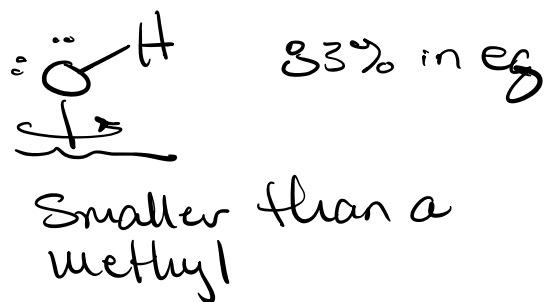 :Ö H 83% in eq
Smaller than a
methyl